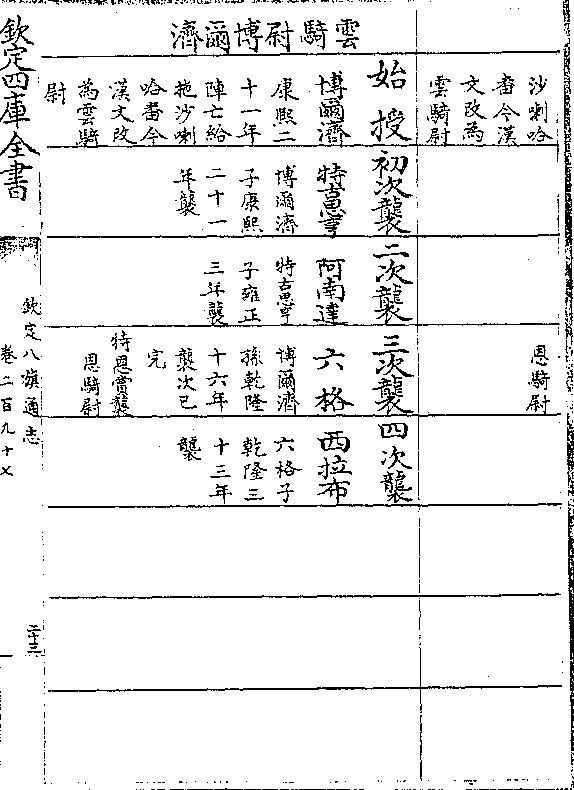 沙喇哈
番今漢
文改為
雲騎尉
恩騎尉
雲騎尉博爾濟
始授
博爾濟
康熙二
十一年
陣亡給
拖沙喇
哈番今
漢文改
為雲騎
尉
初次襲
特古思亨
博爾濟
子康熙
二十一
年襲
二次襲
阿南達
特古思亨
子雍正
三年襲
三次襲
六格
博爾濟
孫乾隆
十六年
襲次已
完
特恩賞襲
恩騎尉
四次襲
西拉布
六格子
乾隆三
十三年
襲
欽定四庫全書
欽定八旗通志
卷二百九十七
二十三